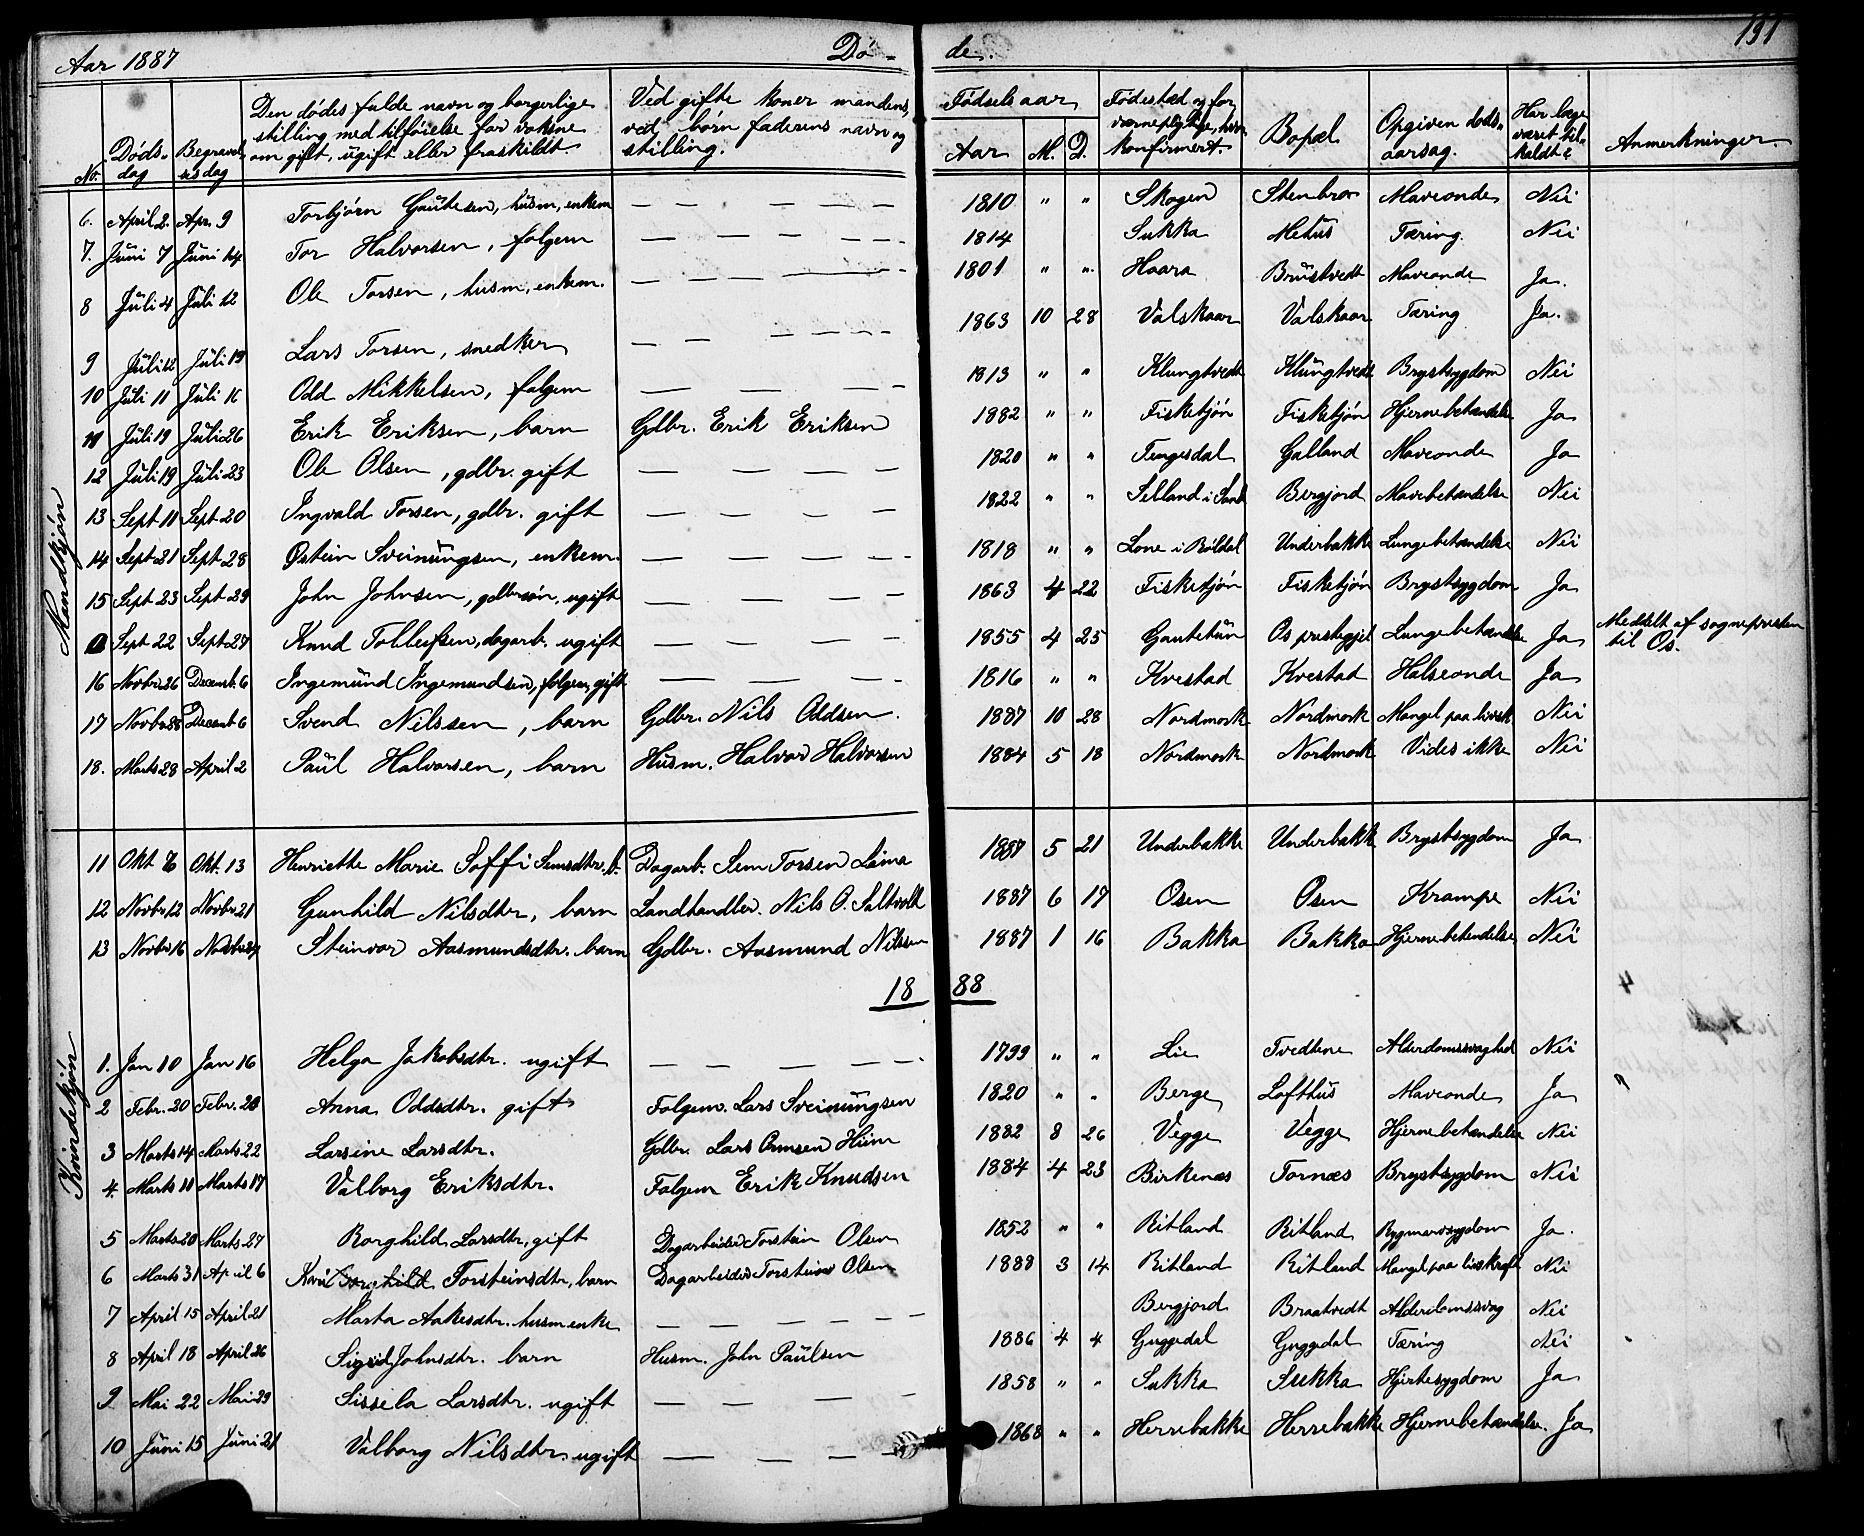 Aar 1887 Dö- de. 191
No. Döds- dag Begravel- sesdag Den dødes fulde navn og borgerlige stilling med tilføielse for voksne om gift, ugift eller fraskildt. Ved gifte koner mandens, ved børn faderens navn og stilling. Fødselsaar Aar M. D. Fødested og for værnepligtige, hvor konfirmert. Bopæl Opgiven døds- aarsag. Har læge været til- kaldt? Anmerkninger.
Mandkjøn
6. April 2 Apr. 9 Torbjørn Gautesen, husm, enkem — — — — — 1810 " " Skogen Stenbroe Maveonde Nei
7. Juni 7 Juni 14 Tor Halvorsen, folgem — — — — — 1814 Sukka Mehus Tæring Nei
8 Juli 4 Juli 12 Ole Torsen, husm, enkem. — — — — — 1801 " " Haara Brustvedt Maveonde Ja.
9 Juli 12 Juli 19 Lars Torsen, snedker — — — — — 1863 10 28 Valskaar Valskaar Tæring Ja.
10 Juli 11 Juli 16 Odd Mikkelsen, folgem — — — — 1813 " " Klungtvedt Klungtvedt Brystsygdom Nei
11 Juli 19 Juli 26 Erik Eriksen, barn Gdbr. Erik Eriksen 1882 " " Fisketjøn Fisketjøn Hjernebetændelse Ja
12 Juli 19 Juli 23 Ole Olsen, gdbr. gift — — — — 1820 " " Tengesdal Galland Maveonde Ja
13 Sept 11 Sept 20 Ingvald Torsen, gdbr. gift — — — — 1822 " " Selland i Sand Bergjord Mavebetændelse Nei
14 Sept 21 Sept 28 Østein Sveinungsen, enkem. — — — — 1818 " " Lone i Röldal Underbakke Lungebetændelse Nei
15 Sept 23 Sept 29 John Johnsen, gdbrsøn, ugift — — — — 1863 4 22 Fisketjøn Fisketjøn Brystsygdom Ja
a Sept 22 Sept 27 Knud Tollefsen, dagarb. ugift — — — — 1855 4 25 Gautetun Os prestegjel Lungebetændelse Ja Meddelt af sognepresten til Os.
16 Novbr 26 Decemb. 6 Ingemund Ingemundsen, folgem, gift — — — — 1816 " " Kvestad Kvestad Halseonde Ja
17 Novbr 28 Decemb 6 Svend Nilssen, barn Gdbr. Nils Oddsen. 1887 10 28 Nordmork Nordmork Mangel paa livsk Nei
18. Marts 28 April 2 Paul Halvorsen, barn Husm. Halvor Halvorsen 1884 5 18 Nordmork Nordmork Vides ikke Nei
Kvindekjøn
11 Okt 6 Okt. 13 Henriette Marie Soffi Semsdtr. b. Dagarb. Sem Torsen Lima 1887 5 21 Underbakke Underbakk Brystsygdom Ja
12 Novbr 12 Novbr 21 Gunhild Nilsdtr, barn Landhandler. Nils O. Saltvold 1887 6 17 Osen Osen Krampe Nei
13 Novbr 16 Novbr 24 Steinvor Aasmundsdtr. barn Gdbr. Aasmund Nilssen 1887 1 16 Bakka Bakka Hjernebetendelse Nei
18 88
1. Jan 10 Jan 16 Helga Jakobsdtr. ugift — — — — — 1799 " " Lie Tvedtene Alderdomssvaghed Nei
2 Febr. 20 Febr. 28 Anna Oddsdtr. gift Folgem. Lars Sveinungsen 1820 " " Berge Lofthus Maveonde Ja
3 Marts 14 Marts 22 Larsine Larsdtr. Gdbr. Lars Ormsen Hiim 1882 8 26 Vegge Vegge Hjernebetændelse Nei
4 Marts 11 Marts 17 Valborg Eriksdtr. Folgem Erik Knudsen 1884 4 23 Birkenæs Tornæs Brystsygdom Nei
5 Marts 20 Marts 27 Borghild Larsdtr, gift Dagarbeider Torstein Olsen 1852 " " Ritland Ritland Rygmarvsygdom Ja.
6 Marts 31 April 6 Torsteinsdtr, barn Dagarbeider Torstein Olsen 1888 3 14 Ritland Ritland Mangel paa livskraft Nei
7 April 15 April 21 Marta Aakesdtr. husm enke — — — — — Bergjord Braatvedt Alderdomssvag Nei
8 April 18 April 26 Sigrid Johnsdtr. barn Husm. John Paulsen 1886 4 4 Guggedal Guggedal Tæring Nei
9 Mai 22 Mai 29 Sissela Larsdtr. ugift — — — — 1858 " " Sukka Sukka Hjertesygdom Ja
10 Juni 15 Juni 21 Valborg Nilsdtr. ugift — — — — 1868 " " Herrebakke Herrebakke Hjernebetændelse. Ja